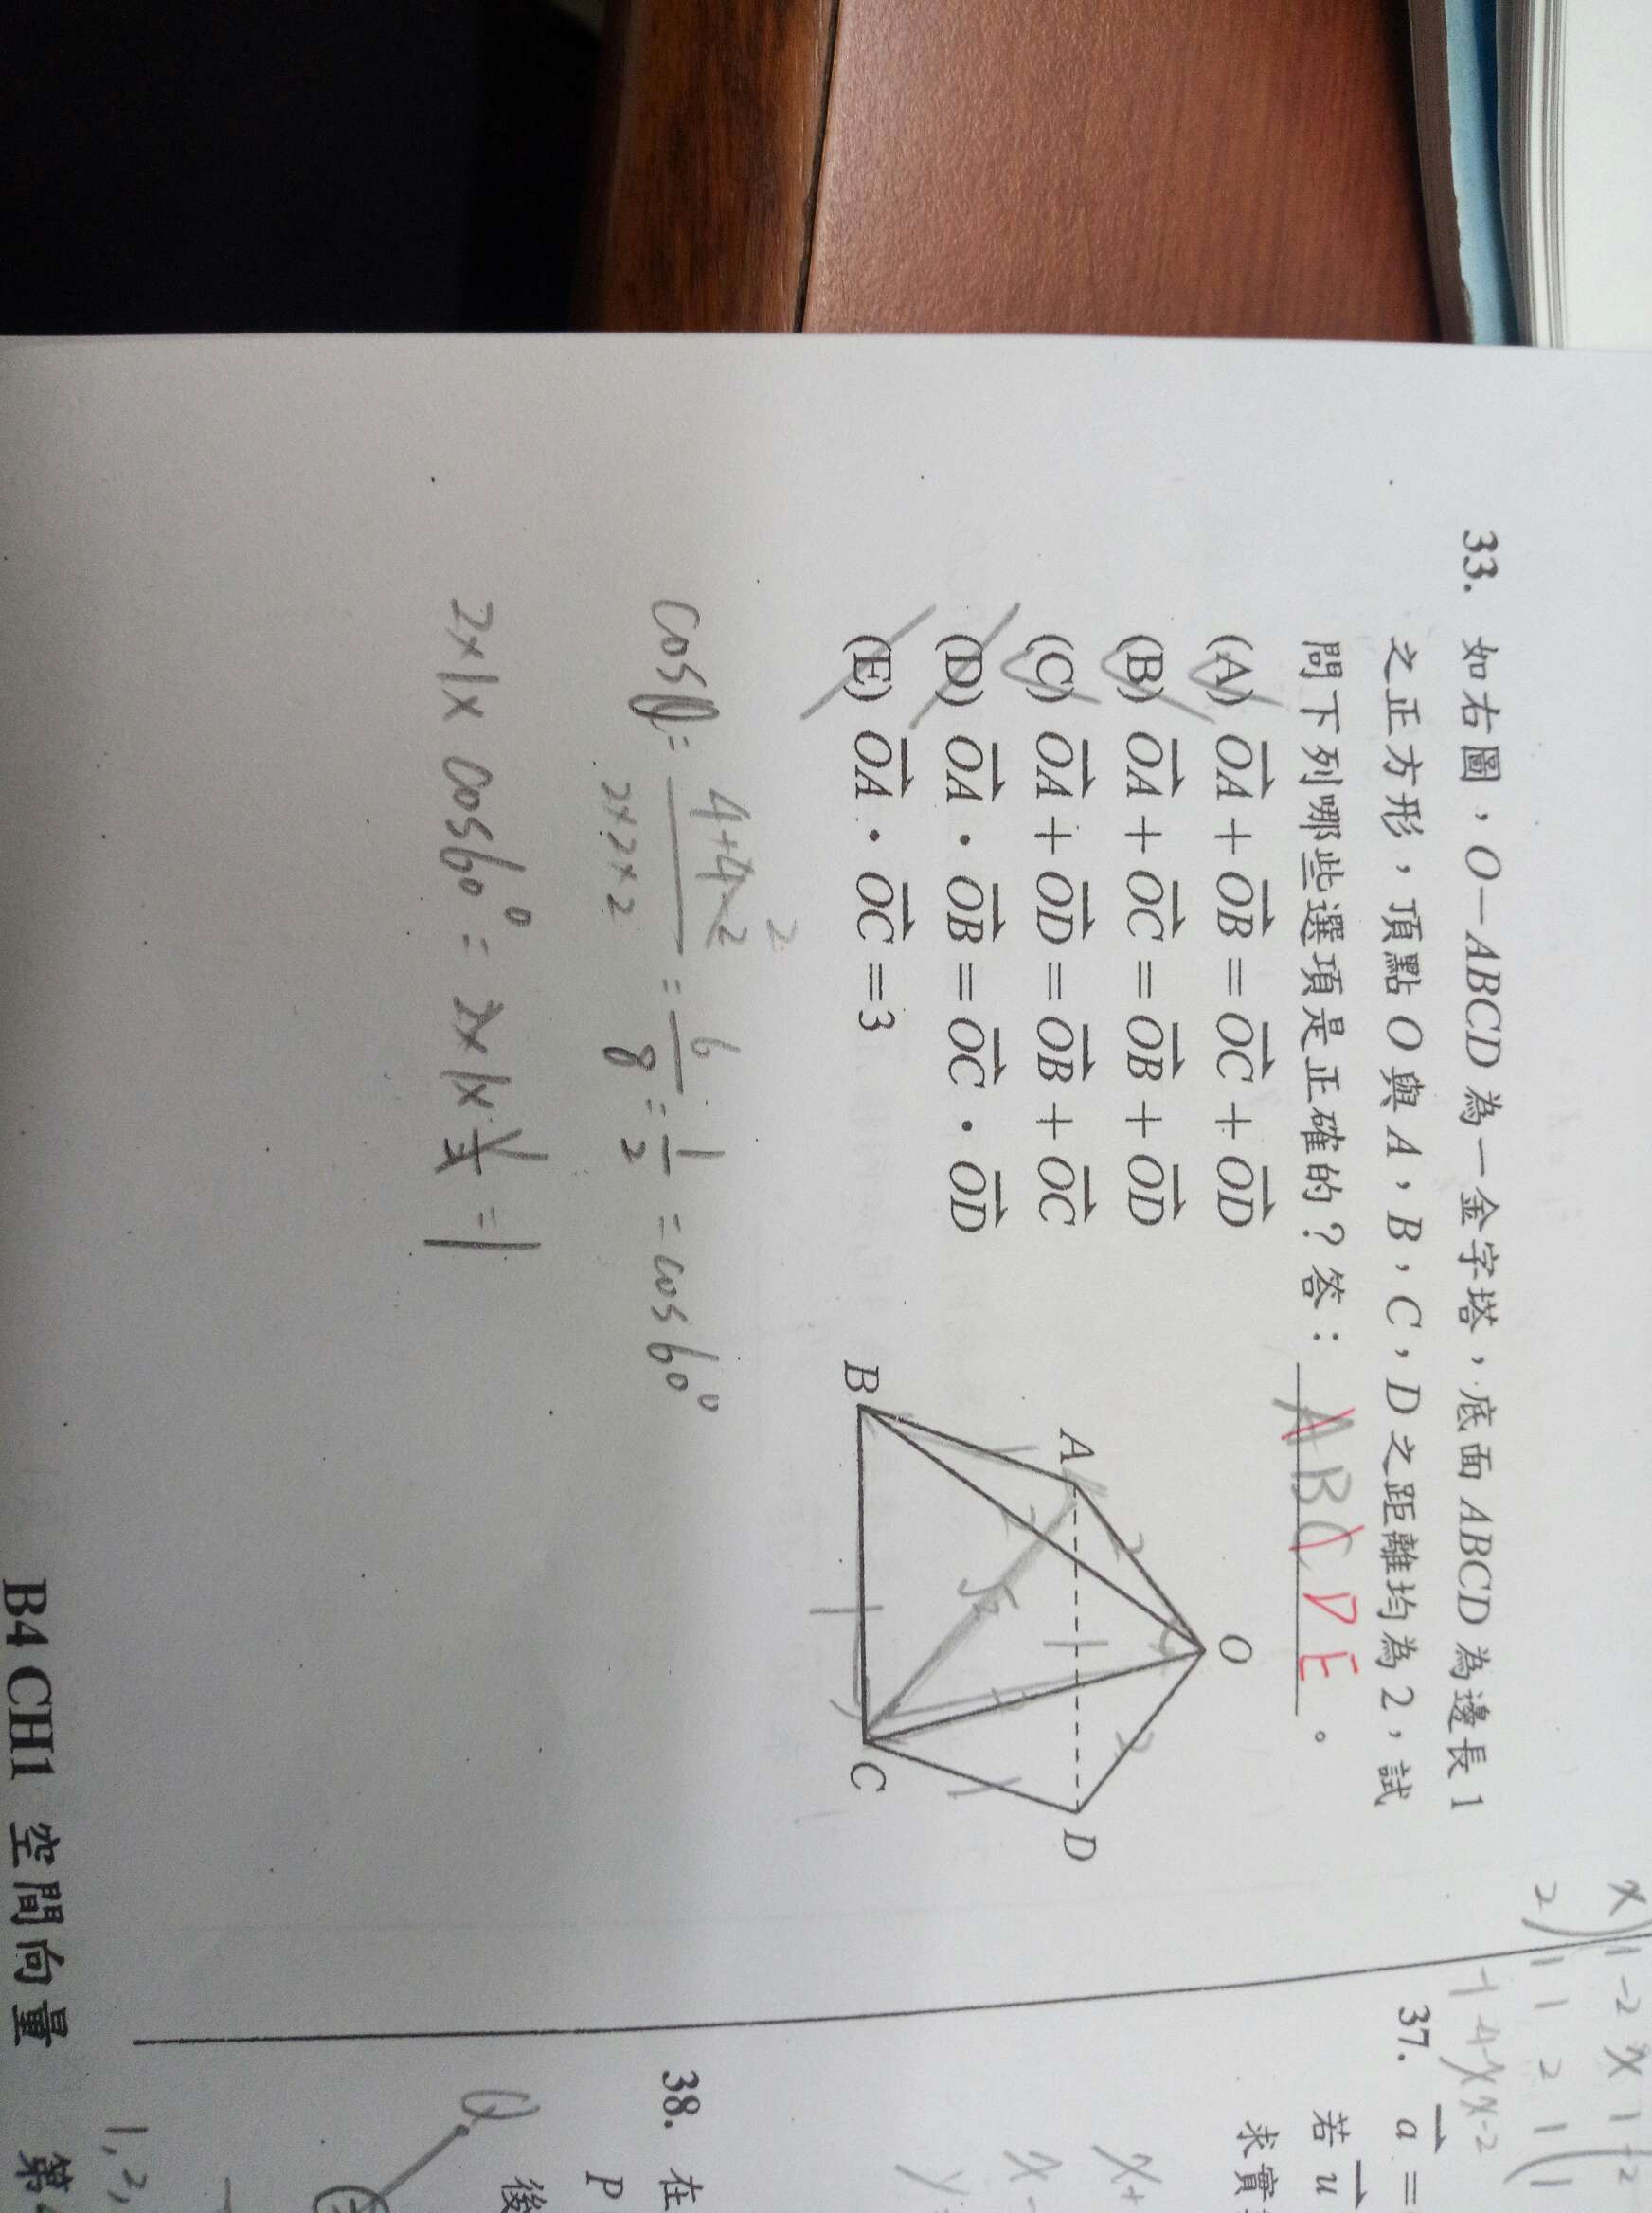 33. 如右圖，O－ABCD 為一金字塔，底面 ABCD 為邊長 1
之正方形，頂點 O 與 A，B，C，D 之距離均為 2，試
問下列哪些選項是正確的？答：ABCDE。
(A) OA + OB = OC + OD
(B) OA + OC = OB + OD
(C) OA + OD = OB + OC
(D) OA · OB = OC · OD
(E) OA · OC = 3
O
A
D
B
C
2
2
√2
1
cosθ = 4+4-2 / 2×2×2 = 6/8 = 1/2 = cos60°
2×1×cos60° = 2×1×1/2 = 1
37. a =
若 u
求實
38. 在
P
後
Q
B4 CH1 空間向量
第
1, 2,